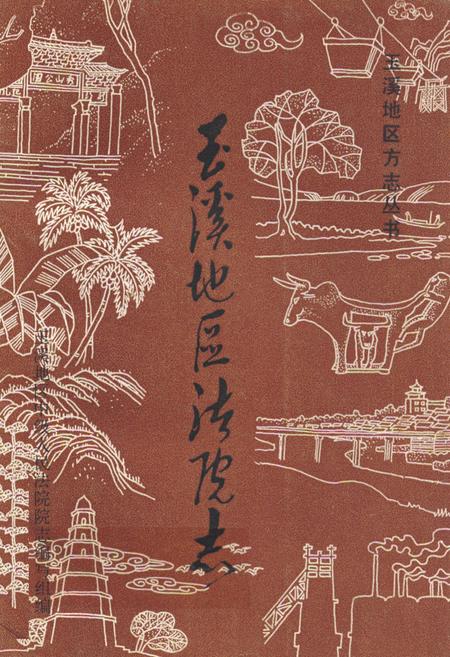 玉溪地区方志丛书
玉溪地區法院志
玉溪地区中级人民法院院志编纂组编
聂耳公園